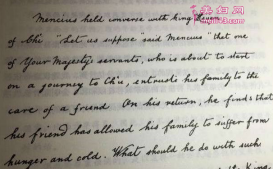 Mencius held converse with King Seven
of Chi "Let us suppose said Mencius" that one
of Your Majesty's servants, who is about to start
on a journey to Ch'u, entrusts his family to the
care of a friend On his return, he finds that
his friend has allowed his family to suffer from
hunger and cold. What should he do with such
King,